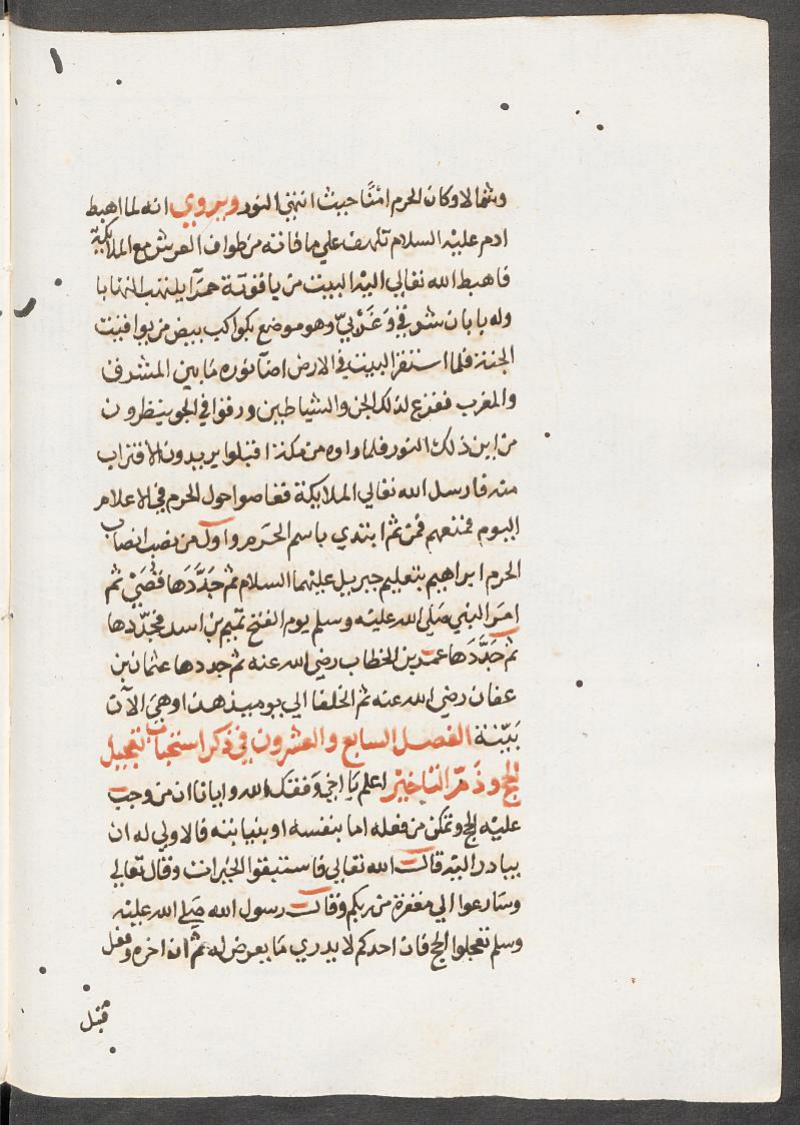 وشمالا وكان الحرم امنا حيث انتهي النور ويروي انه لما اهبط
ادم عليه السلام تلهف علي ما فاته من طواف العرش مع الملايكة
فاهبط الله تعالي اليه البيت من ياقوتة حمرآ يلتهب التهابا
وله بابان شرقي وغربي وهو موضع بكواكب بيض من يواقيت
الجنة فلما استقر البيت في الارض اضآ نوره ما بين المشرق
والمغرب ففزع لذلك الجن والشياطين ورقوا في الجو ينظرون
من اين ذلك النور فلما راوه من مكة اقبلوا يريدون الاقتراب
منه فارسل الله تعالي الملايكة فقاموا حول الحرم في الاعلام
اليوم فمنعهم فمن ثم ابتدي باسم الحرم واول من نصب انصاب
الحرم ابراهيم بتعليم جبريل عليهما السلام ثم جددها قصي ثم
امر النبي صلي الله عليه وسلم يوم الفتح تميم بن اسد فجددها
ثم جددها عمر بن الخطاب رضي الله عنه ثم جددها عثمان بن
عفان رضي الله عنه ثم الخلفا الي يومنا هذا وهي الآن
بينة الفصل السابع والعشرون في ذكر استحباب تعجيل
الحج وذم التاخير اعلم يا اخي وفقك الله وايانا ان من وجب
عليه الحج وتمكن من فعله اما بنفسه او بنيابته فالاولي له ان
يبادر اليه قال الله تعالي فاستبقوا الخيرات وقال تعالي
وسارعوا الي مغفرة من ربكم وقال رسول الله صلي الله عليه
وسلم تعجلوا الحج فان احدكم لا يدري ما يعرض له ثم ان اخره وفعل
قبل